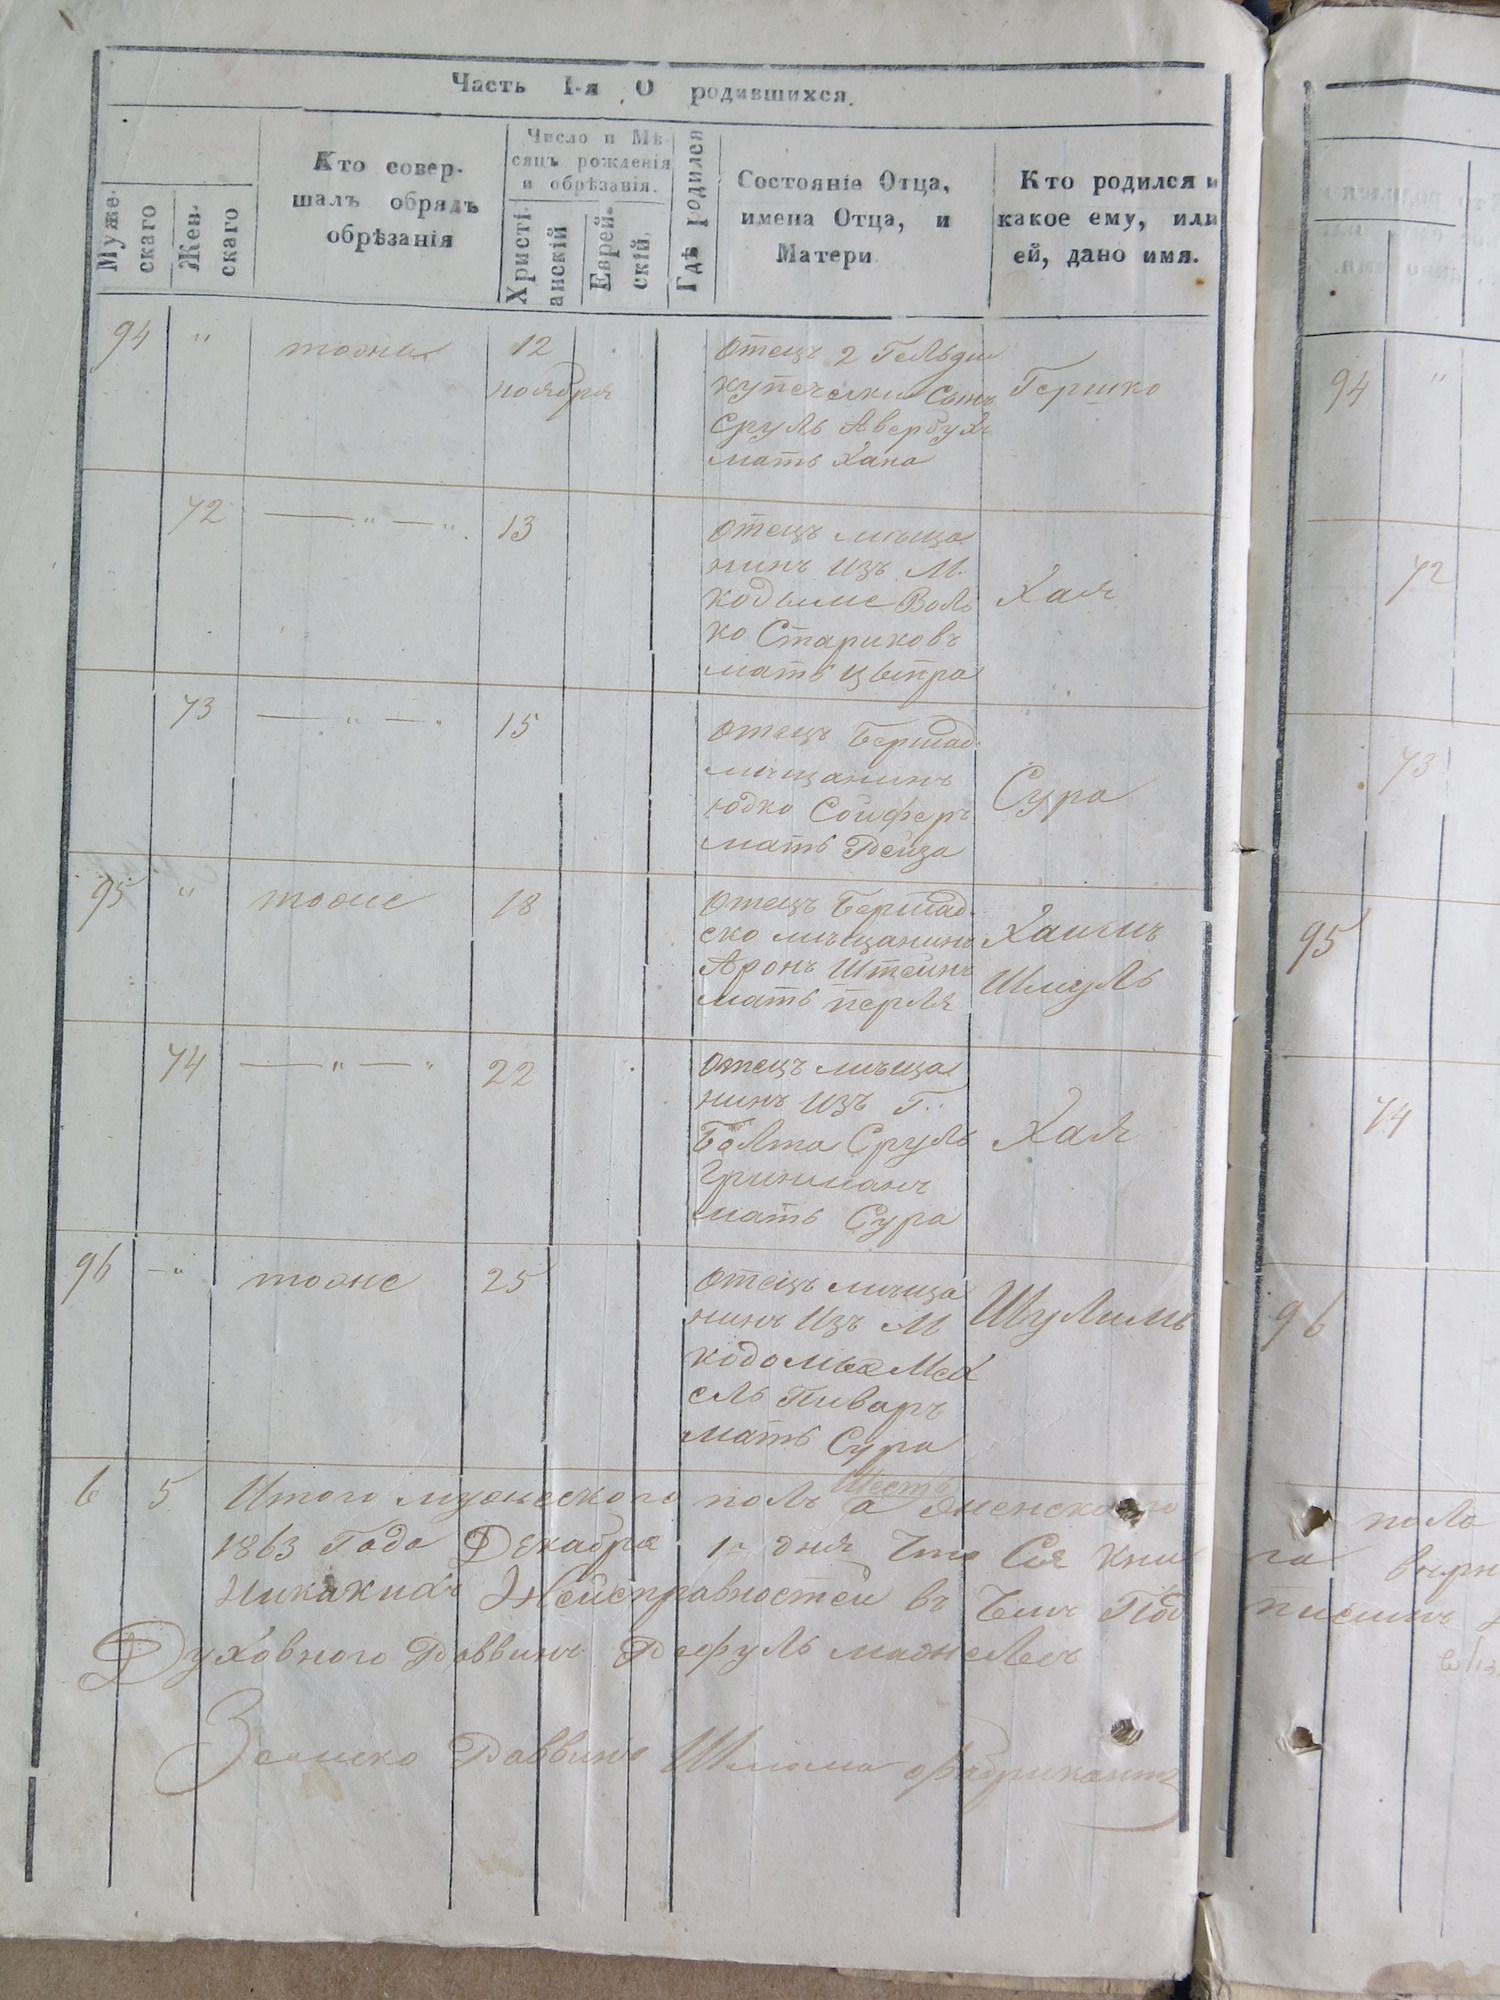 Часть I-я О родившихся.
Муже-
скаго
Жен-
скаго
Кто совер-
шалъ обрядъ
обрѣзанія
Число и Мѣ-
сяцъ рожденія
и обрѣзанія.
Христі-
анскій
Еврей-
скій.
Гдѣ родился
Состояніе Отца,
имена Отца, и
Матери
Кто родился и
какое ему, или
ей, дано имя.
94 " тоже 12 ноября
Отецъ 2 Гельдии
купечески Сынъ
Сруль Авербухъ
мать Хана
Гершко
72 — " — " 13
Отецъ мѣща
нинъ изъ М.
кодыме Воль
ко Стариковъ
мать Цыпра
Хая
73 — " — " 15
Отецъ Бершад.
мѣщанинъ
Юдко Сойферъ
мать Рейза
Сура
95 " тоже 18
Отецъ Бершад.
ско мѣщанинъ
Аронъ Штейнъ
мать перля
Хаимъ
Шмуль
74 — " — " 22
Отецъ мѣща
нинъ изъ Г.
Балта Сруль
Гринманъ
мать Сура
Хая
96 — " тоже 25
Отецъ мѣща
нинъ изъ М
кодома Мех
ель Пиваръ
мать Сура
Шулимъ
6 5 Итого мужеского полъ Шесть а женского
1863 Года Декабра 1 дня Что Сея Кни
Никакихъ Неисправностей въ Чем Под
Духовного Раввинъ Рефуль
Раввинъ Шлома Фабрикантъ
94 "
72
73
95
74
96
пола
га верн
писим